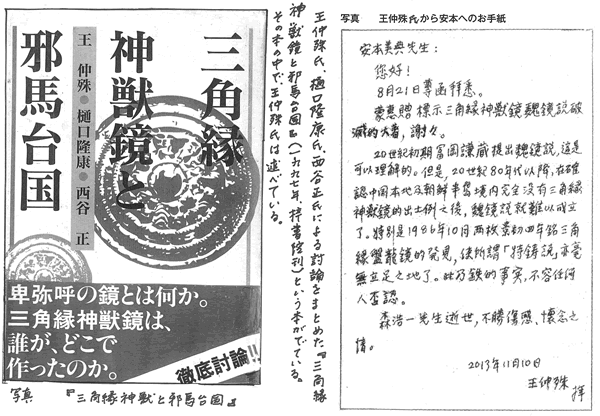 三角縁
神獣鏡と
邪馬台国
王 仲殊●樋口隆康●西谷 正
卑弥呼の鏡とは何か。
三角縁神獣鏡は、
誰が、どこで
作ったのか。
徹底討論!!
写真 『三角縁神獣と邪馬台国』
王仲殊氏、樋口隆康氏、西谷正氏による討論をまとめた『三角縁
神獣鏡と邪馬台国』(一九九七年、梓書院刊)という本がでている。
その本の中で、王仲殊氏は述べている。
写真 王仲殊氏から安本へのお手紙
安本美典先生:
您好!
8月21日尊函拜悉。
蒙惠赠標示三角縁神獣鏡魏鏡説破
滅的大著,谢々。
20世紀初期富岡謙蔵提出魏鏡説,這是
可以理解的。但是,20世紀80年代以降,在確
認中国本地及朝鮮半島境内完全没有三角縁
神獣鏡的出土例之後,魏鏡説就難以成立
了。特別是1986年10月両枚景初四年銘三角
縁盤龍鏡的発見,使所謂「特鋳説」亦毫
無立足之地了。此乃鉄的事実,不容任何
人否認。
森浩一先生逝世,不勝傷感、懐念之
情。
2013年11月10日
王仲殊 拝